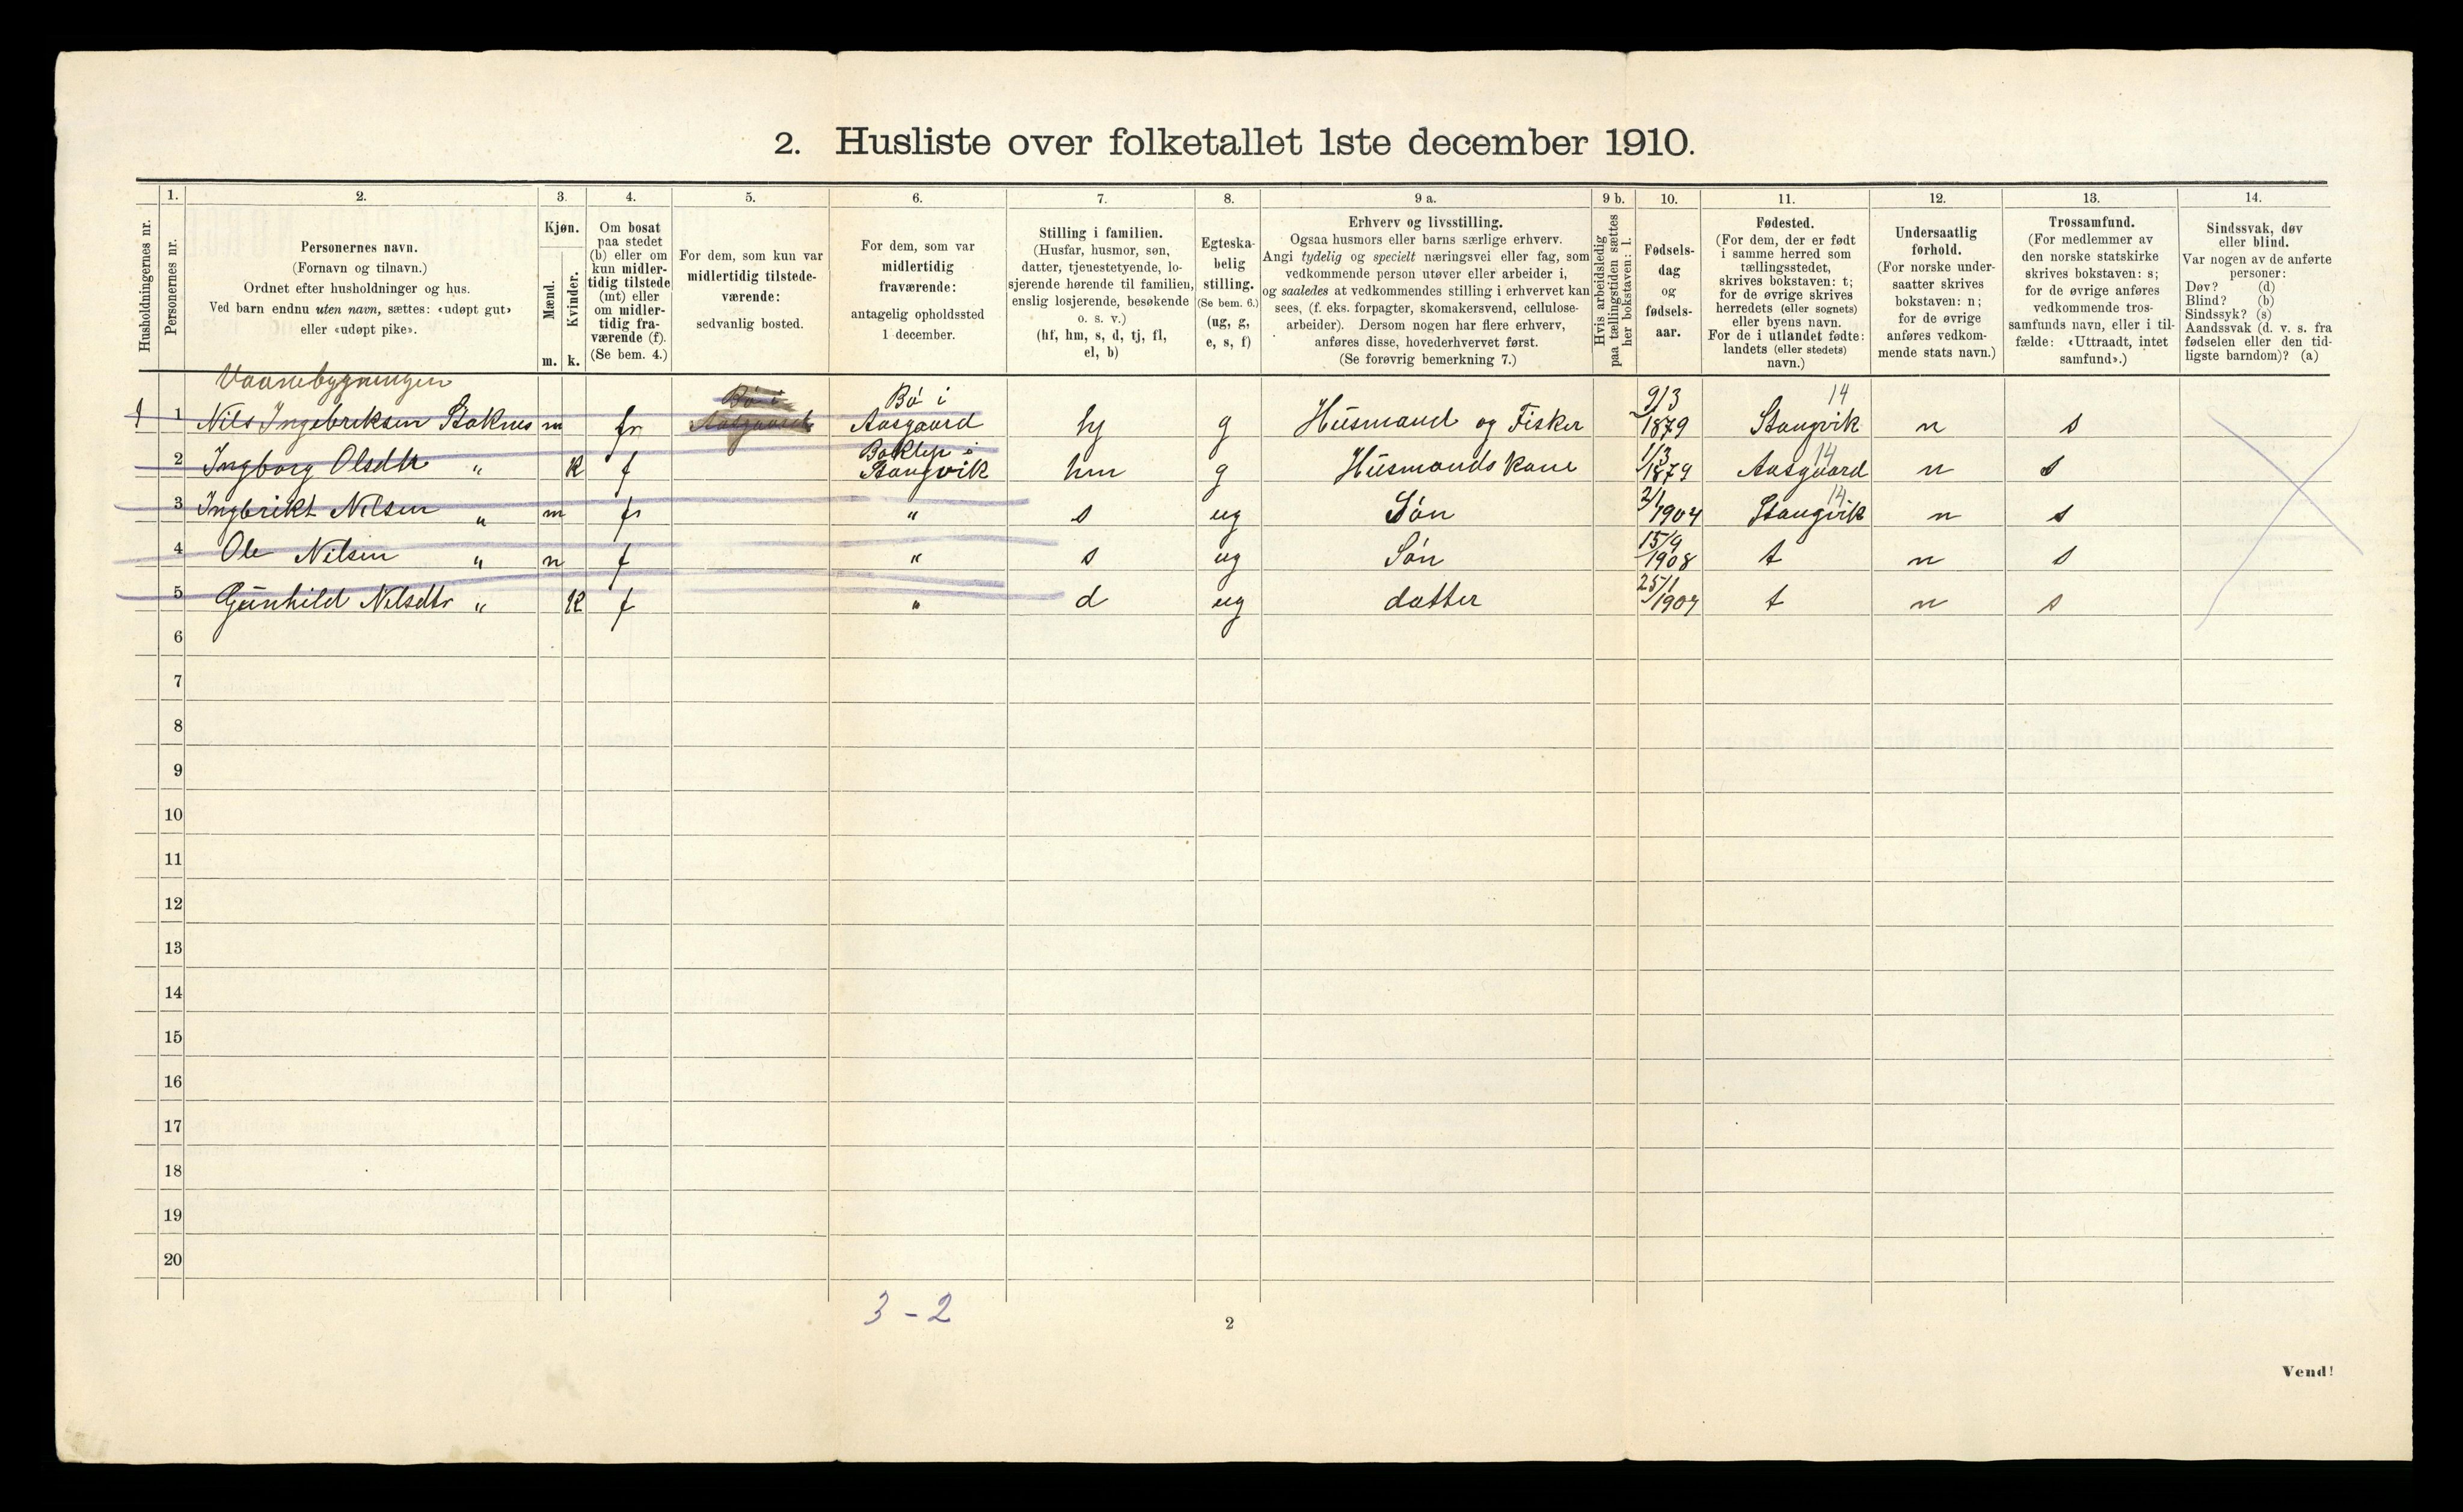 2. Husliste over folketallet 1ste december 1910.
Husholdningernes nr.
1.
Personernes nr.
2.
Personernes navn.
(Fornavn og tilnavn.)
Ordnet efter husholdninger og hus.
Ved barn endnu uten navn, sættes: «udøpt gut»
eller «udøpt pike».
3.
Kjøn.
Mænd.
m.
Kvinder.
k.
4.
Om bosat
paa stedet
(b) eller om
kun midler-
tidig tilstede
(mt) eller
om midler-
tidig fra-
værende (f).
(Se bem. 4.)
5.
For dem, som kun var
midlertidig tilstede-
værende:
sedvanlig bosted.
6.
For dem, som var
midlertidig
fraværende:
antagelig opholdssted
1 december.
7.
Stilling i familien.
(Husfar, husmor, søn,
datter, tjenestetyende, lo-
sjerende hørende til familien,
enslig losjerende, besøkende
o. s. v.)
(hf, hm, s, d, tj, fl,
el, b)
8.
Egteska-
belig
stilling.
(Se bem. 6.)
(ug, g,
e, s, f)
9 a.
Erhverv og livsstilling.
Ogsaa husmors eller barns særlige erhverv.
Angi tydelig og specielt næringsvei eller fag, som
vedkommende person utøver eller arbeider i,
og saaledes at vedkommendes stilling i erhvervet kan
sees, (f. eks. forpagter, skomakersvend, cellulose-
arbeider). Dersom nogen har flere erhverv,
anføres disse, hovederhvervet først.
(Se forøvrig bemerkning 7.)
9 b.
Hvis arbeidsledig
paa tællingstiden sættes
her bokstaven: l.
10.
Fødsels-
dag
og
fødsels-
aar.
11.
Fødested.
(For dem, der er født
i samme herred som
tællingsstedet,
skrives bokstaven: t;
for de øvrige skrives
herredets (eller sognets)
eller byens navn.
For de i utlandet fødte:
landets (eller stedets)
navn.)
12.
Undersaatlig
forhold.
(For norske under-
saatter skrives
bokstaven: n;
for de øvrige
anføres vedkom-
mende stats navn.)
13.
Trossamfund.
(For medlemmer av
den norske statskirke
skrives bokstaven: s;
for de øvrige anføres
vedkommende tros-
samfunds navn, eller i til-
fælde: «Uttraadt, intet
samfund».)
14.
Sindssvak, døv
eller blind.
Var nogen av de anførte
personer:
Døv? (d)
Blind? (b)
Sindssyk? (s)
Aandssvak (d. v. s. fra
fødselen eller den tid-
ligste barndom)? (a)
Vaanebygningen
1 1 Nils Ingebriksen Stoknes m fr Bø i Aasgaard Bø i Aasgaard hf g Husmand og Fisker 9/3 1879 Stangvik 14 n s
2 Ingborg Olsdtr " k f i Stangvik hm g Husmands Kone 1/3 1879 Aasgaard 14 n s
3 Ingbrikt Nilsen " m fr " s ug Søn 2/1 1904 Stangvik 14 n s
4 Ole Nilsen " m f " s ug Søn 15/9 1908 t n s
5 Gunhild Nilsdtr " k f " d ug datter 25/1 1907 t n s
6
7
8
9
10
11
12
13
14
15
16
17
18
19
20
3 - 2
2
Vend!